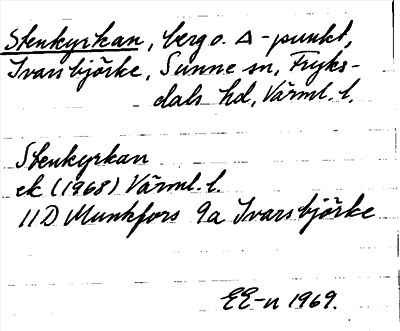 Stenkyrkan, berg o. △-punkt,
Ivarsbjörke, Sunne sn, Fryks-
dals hd, Värml. l.
Stenkyrkan
ek (1968) Värml. l.
11D Munkfors 9a Ivarsbjörke
EE-n 1969.